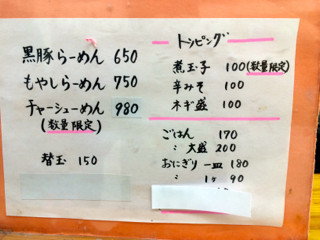 黒豚らーめん 650
もやしらーめん 750
チャーシューめん 980
(数量限定)
替玉 150
トッピング
煮玉子 100(数量限定)
辛みそ 100
ネギ盛 100
ごはん 170
〃 大盛 200
おにぎり 一皿 180
〃 1ヶ 90